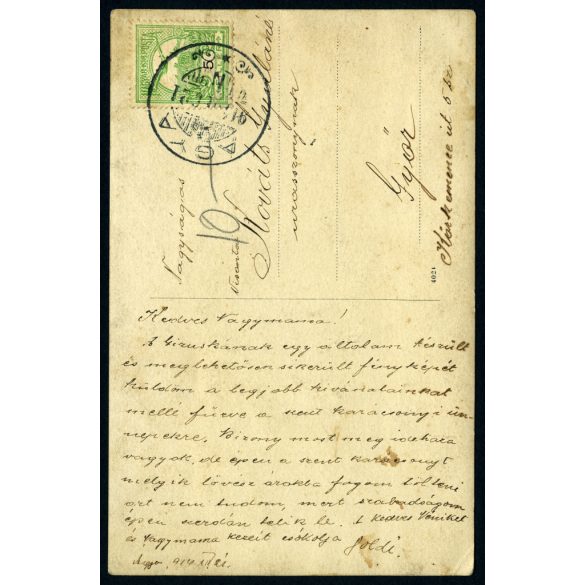 Nagyságos
Kováts Gyuláné
úrasszonynak
Győr
Kőrkemence út 5 sz
4024
Kedves Nagymama!
A Gizuskának egy általam készült
és meglehetősen sikerült fényképét
küldöm a legjobb kívánalainkat
mellé fűzve a szent karácsonyi ün-
nepekre. Bizony most még idehaza
vagyok, de épen a szent karácsonyt
melyik lövész árokba fogom tölteni
azt nem tudom, mert szabadságom
épen szerdán telik le. A kedves
és Nagymama kezeit csókolja